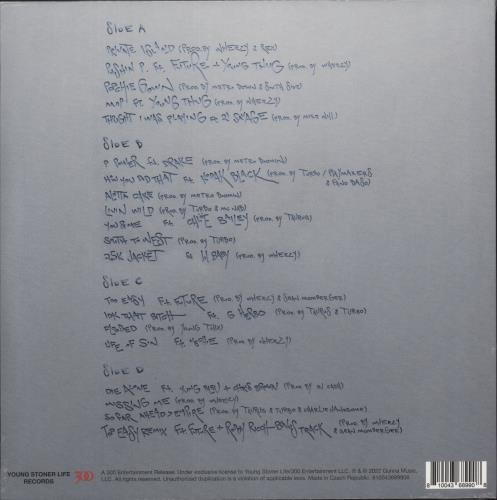 SIDE A
PRIVATE ISLAND (PROD. BY WHEEZY & REX)
PUSHIN P. Ft. FUTURE + YOUNG THUG (PROD. BY WHEEZY)
POOCHIE GOWN (PROD. BY METRO BOOMIN & SOUTH SIDE)
MOP Ft. YOUNG THUG (PROD. BY WHEEZY)
THOUGHT I WAS PLAYING Ft 21 SAVAGE (PROD. BY MIKE WILL)
SIDE B
P POWER Ft. DRAKE (PROD. BY METRO BOOMIN)
HOW YOU DID THAT Ft KODAK BLACK (PROD. BY TURBO /
ALOTTA CAKE (PROD. BY METRO BOOMIN)
LIVIN WILD (PROD. BY TURBO &
YOU & ME Ft. CHLOE BAILEY (PROD. BY TAURUS)
SOUTH TO WEST (PROD. BY TURBO)
25K JACKET Ft LIL BABY (PROD. BY WHEEZY)
SIDE C
TOO EASY Ft FUTURE (PROD. BY WHEEZY & SEAN MOMBERGER)
IDK THAT BITCH Ft. G HERBO (PROD. BY TAURUS & TURBO)
FLOODED (PROD. BY
LIFE OF SIN Ft NECHIE (PROD. BY WHEEZY)
SIDE D
DIE ALONE Ft YUNG BLEU + CHRIS BROWN (PROD. BY
MISSING ME (PROD. BY WHEEZY)
SO FAR AHEAD > EMPIRE (PROD. BY TAURUS & TURBO & CHARLIE HANDSOME)
TOO EASY REMIX Ft FUTURE + RODDY RICCH - BONUS TRACK (PROD. BY WHEEZY
& SEAN MOMBERGER)
YOUNG STONER LIFE
RECORDS
300
A 300 Entertainment Release. Under exclusive license to Young Stoner Life/300 Entertainment LLC. ℗ & © 2022 Gunna Music,
LLC. All rights reserved. Unauthorized duplication is a violation of applicable laws. Made in Czech Republic. 810043689908
8 10043 68990 8